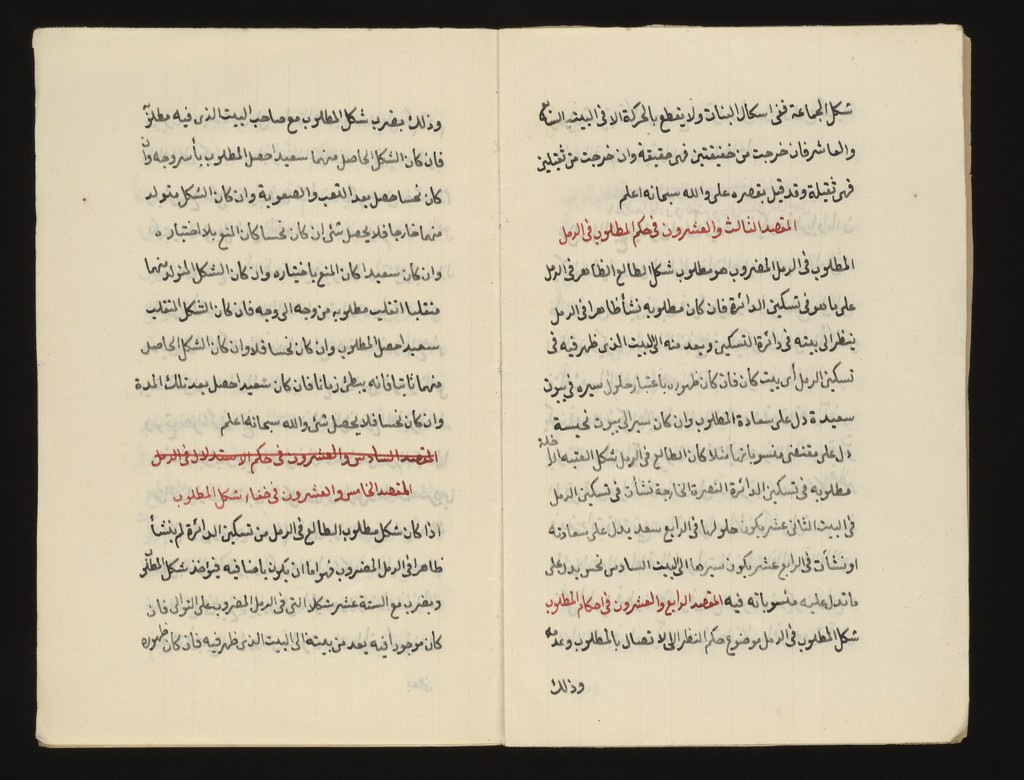 شكل الجماعة ففى اسكال البنات ولا يقطع بالحركة الا فى البيت السابع
والعاشر فان خرجت من خفيفتين فهى خفيفة وان خرجت من ثقيلين
فهى ثقيلة وقد قيل بقصره على والله سبحانه اعلم
المقصد الثالث والعشرون فى حكم المطلوب فى الرمل
المطلوب فى الرمل المضروب هو مطلوب شكل الطالع الظاهر فى الرمل
على ماهو فى تسكين الدائرة فان كان مطلوبه نشأ ظاهرا فى الرمل
ينظر الى بيته فى دائرة التسكين وبعد منه الى البيت الذى ظهر فيه فى
تسكين الرمل أى بيت كان فان كان ظهوره باعتبار حلول سيره فى بيوت
سعيدة دل على سعادة المطلوب وان كان سير الى بيوت نحيسة
دل على مقتضى منسوباتها مثلا كان الطالع فى الرمل شكل العتبه الداخلة
مطلوبه فى تسكين الدائرة النصرة الخارجة نشأت فى تسكين الرمل
فى البيت الثانى عشر يكون حلولها فى الرابع سعد يدل على سعادته
او نشأت فى الرابع عشر يكون سيرها الى البيت السادس نحس يدل على
ما تدل عليه منسوباته فيه المقصد الرابع والعشرون فى احكام المطلوب
شكل المطلوب فى الرمل موضوع حكم النظر الى الاتصال بالمطلوب وعدمه
وذلك
وذلك بضرب شكل المطلوب مع صاحب البيت الذى فيه مطلوبه
فان كان الشكل الحاصل منهما سعيدا حصل المطلوب بأسر وجه وان
كان نحسا حصل بعد التعب والصعوبة وان كان الشكل متولد
منهما خارجا فلا يحصل شئ ان كان نحسا كان المنع بلا اختياره
وان كان سعيدا كان المنع باختياره وان كان الشكل المتولد منهما
منقلبا انقلب مطلوبه من وجه الى وجه فان كان الشكل المنقلب
سعيدا حصل المطلوب وان كان نحسا فلا وان كان الشكل الحاصل
منهما ثابتا فانه يبطئ زمانا فان كان سعيدا حصل بعد تلك المدة
وان كان نحسا فلا يحصل شئ والله سبحانه اعلم
المقصد السادس والعشرون فى حكم الاستدلال فى الرمل
المقصد الخامس والعشرون فى خفاء شكل المطلوب
اذا كان شكل مطلوب الطالع فى الرمل من تسكين الدائرة لم ينشأ
ظاهرا فى الرمل المضروب فهو اما ان يكون باضافيه فيؤخذ شكل المطلوب
ويضرب مع الستة عشر شكلا التى فى الرمل المضروب على التوالى فان
كان موجودا فيه يعد من بيته الى البيت الذى ظهر فيه فان كان ظهوره